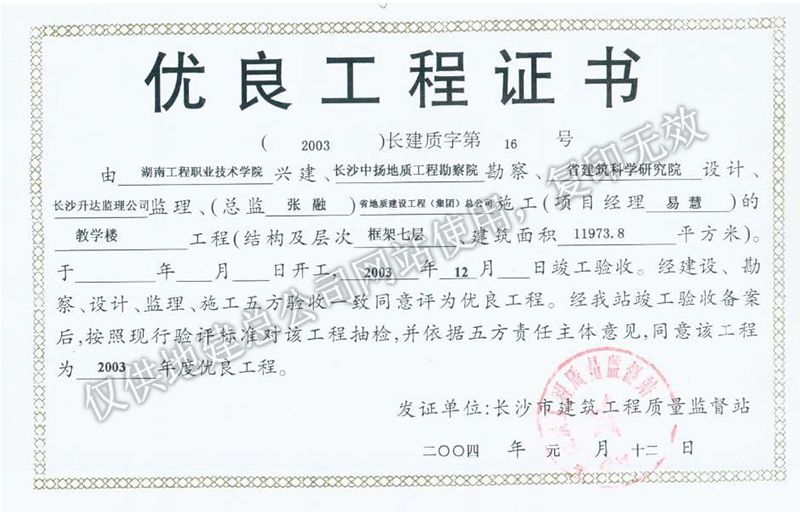 优良工程证书
( 2003 )长建质字第 16 号
由 湖南工程职业技术学院 兴建、长沙中扬地质工程勘察院 勘察、省建筑科学研究院 设计、
长沙升达监理公司 监理、(总监 张融 )省地质建设工程(集团)总公司 施工(项目经理 易慧 )的
教学楼 工程(结构及层次 框架七层 、建筑面积 11973.8 平方米)。
于 年 月 日开工, 2003 年 12 月 日竣工验收。经建设、勘
察、设计、监理、施工五方验收一致同意评为优良工程。经我站竣工验收备案
后,按照现行验评标准对该工程抽检,并依据五方责任主体意见,同意该工程
为 2003 年度优良工程。
发证单位:长沙市建筑工程质量监督站
二〇〇四 年 元 月 十二 日
仅供地建总公司网站使用,复印无效